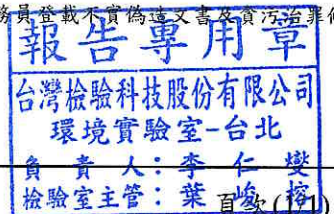 務員登載不實偽造文書及貪污治罪
報告專用章
台灣檢驗科技股份有限公司
環境實驗室-台北
負責人：李仁燮
檢驗室主管：葉峻榕
頁次(1/1)